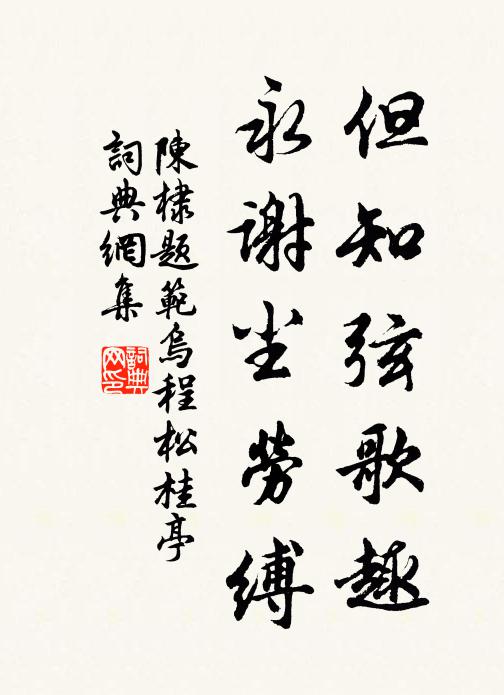 但知弦歌趣
永谢尘劳缚
陳棣题範烏程松桂亭
詞典網集
詞典网印